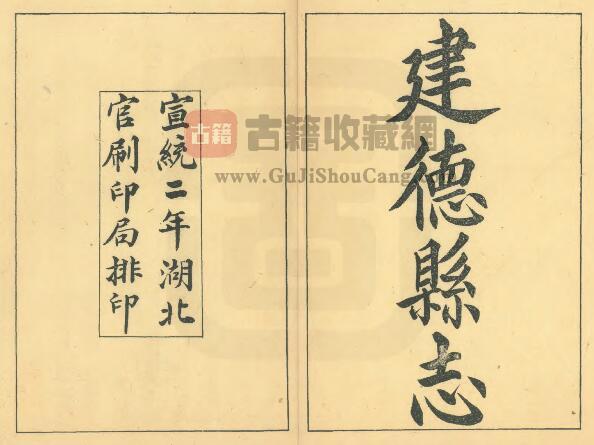 建德縣志
宣統二年湖北
官刷印局排印
古籍
古籍收藏網
www.GuJiShouCang.